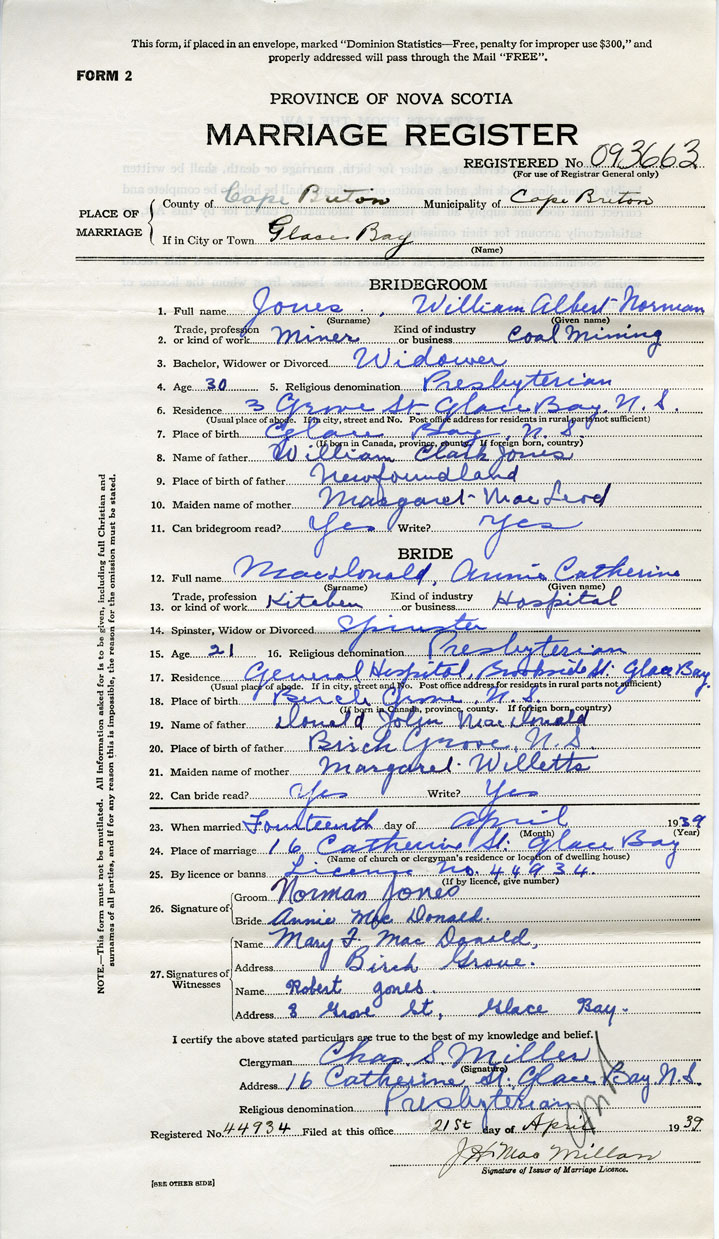 This form, if placed in an envelope, marked "Dominion Statistics—Free, penalty for improper use $300," and
properly addressed will pass through the Mail "FREE".
FORM 2
PROVINCE OF NOVA SCOTIA
MARRIAGE REGISTER
REGISTERED No. 093663
(For use of Registrar General only)
PLACE OF MARRIAGE
County of Cape Breton Municipality of Cape Breton
If in City or Town Glace Bay
(Name)
BRIDEGROOM
1. Full name Jones, William Albert Norman
(Surname) (Given name)
2. Trade, profession or kind of work Miner Kind of industry or business Coal Mining
3. Bachelor, Widower or Divorced Widower
4. Age 30 5. Religious denomination Presbyterian
6. Residence 3 Grove St. Glace Bay, N.S.
(Usual place of abode. If in city, street and No. Post office address for residents in rural parts not sufficient)
7. Place of birth Glace Bay, N.S.
(If born in Canada, province, county. If foreign born, country)
8. Name of father William Clark Jones
9. Place of birth of father Newfoundland
10. Maiden name of mother Margaret MacLeod
11. Can bridegroom read? Yes Write? Yes
BRIDE
12. Full name MacDonald, Annie Catherine
(Surname) (Given name)
13. Trade, profession or kind of work Kitchen Kind of industry or business Hospital
14. Spinster, Widow or Divorced Spinster
15. Age 21 16. Religious denomination Presbyterian
17. Residence General Hospital, Brookside St. Glace Bay.
(Usual place of abode. If in city, street and No. Post office address for residents in rural parts not sufficient)
18. Place of birth Birch Grove N.S.
(If born in Canada, province, county. If foreign born, country)
19. Name of father Donald John MacDonald
20. Place of birth of father Birch Grove, N.S.
21. Maiden name of mother Margaret Willetts
22. Can bride read? Yes Write? Yes
23. When married Fourteenth day of April 1939
(Month) (Year)
24. Place of marriage 16 Catherine St. Glace Bay
(Name of church or clergyman's residence or location of dwelling house)
25. By licence or banns License No. 44934.
(If by licence, give number)
26. Signature of
Groom Norman Jones
Bride Annie Mac Donald.
27. Signatures of Witnesses
Name Mary F. Mac Donald,
Address Birch Grove.
Name Robert Jones.
Address 8 Grove St, Glace Bay.
I certify the above stated particulars are true to the best of my knowledge and belief.
Clergyman Chas. S. Miller
(Signature)
Address 16 Catherine St. Glace Bay N.S.
Religious denomination Presbyterian
Registered No. 44934 Filed at this office 21st day of April 1939
J H Mac Millan
Signature of Issuer of Marriage Licence.
[SEE OTHER SIDE]
NOTE.—This form must not be mutilated. All information asked for is to be given, including full Christian and
surnames of all parties, and if for any reason this is impossible, the reason for the omission must be stated.